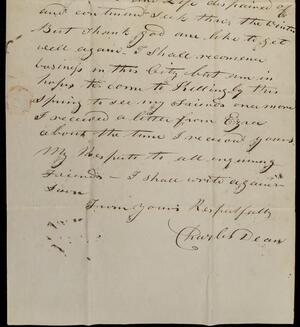 Life despaired of
and continued Sick thru the Winter
But thank God am like to get
well again. I shall recomence
busings in this City but am in
hopes to come to Killingly this
Spring to see my Friends once more
I received a letter from Ezra
about the time I received yours
My Respects to all enquiring
Friends – I shall write again
Soon
From yours Respetfully
Charles Dean